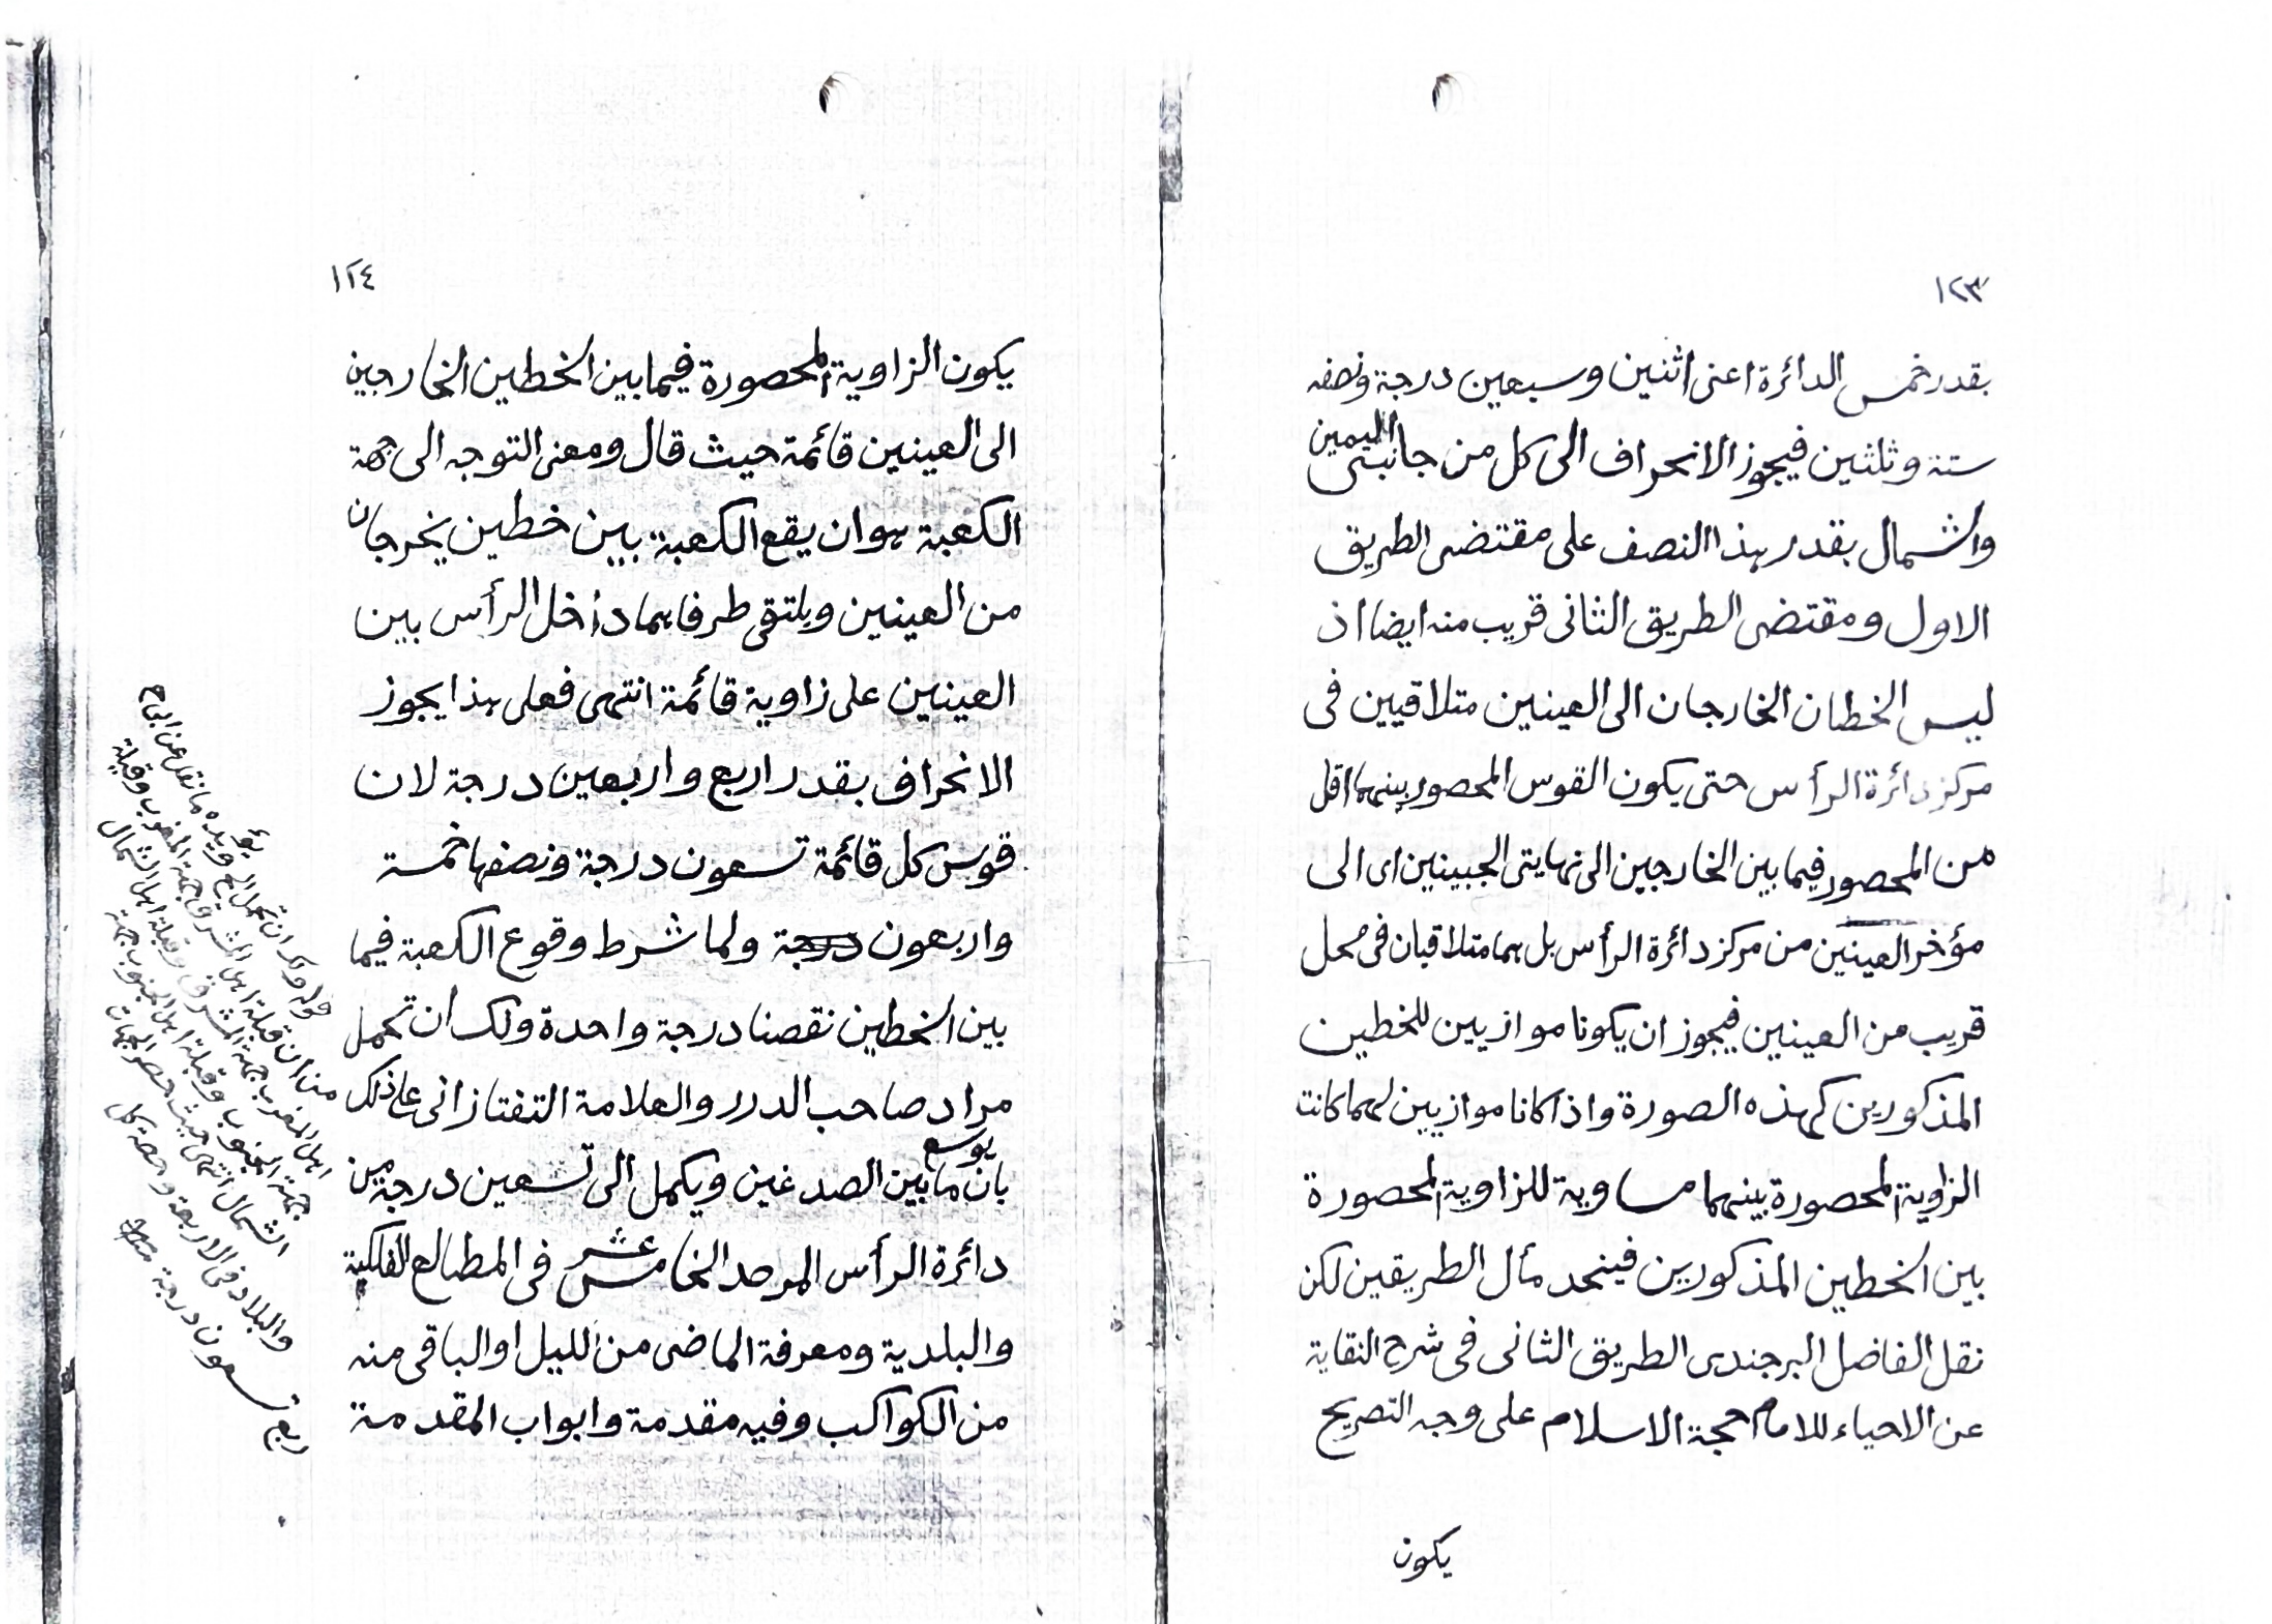 ١٢٣
بقدر خمس الدائرة اعنى اثنين وسبعين درجة ونصفه
ستة وثلثين فيجوز الانحراف الى كل من جانبى اليمين
والشمال بقدر هذا النصف على مقتضى الطريق
الاول ومقتضى الطريق الثانى قريب منه ايضا اذ
ليس الخطان الخارجان الى العينين متلاقيين فى
مركز دائرة الرأس حتى يكون القوس المحصور بينهما اقل
من المحصور فيما بين الخارجين الى نهايتى الجبينين اى الى
مؤخر العينين من مركز دائرة الرأس بل هما متلاقيان فى محل
قريب من العينين فيجوز ان يكونا موازيين للخطين
المذكورين كهذه الصورة واذا كانا موازيين لهما كانت
الزاوية المحصورة بينهما مساوية للزاوية المحصورة
بين الخطين المذكورين فيتحد مأل الطريقين لكن
نقل الفاضل البرجندى الطريق الثانى فى شرح النقاية
عن الاحياء للامام حجة الاسلام على وجه التصريح
يكون
١٢٤
يكون الزاوية المحصورة فيما بين الخطين الخارجين
الى العينين قائمة حيث قال ومعنى التوجه الى جهة
الكعبة هو ان يقع الكعبة بين خطين يخرجان
من العينين ويلتقى طرفاهما داخل الرأس بين
العينين على زاوية قائمة انتهى فعلى هذا يجوز
الانحراف بقدر اربع واربعين درجة لان
قوس كل قائمة تسعون درجة ونصفها خمسة
واربعون درجة ولما شرط وقوع الكعبة فيما
بين الخطين نقصنا درجة واحدة ولك ان تحمل
مراد صاحب الدرر والعلامة التفتازانى على ذلك
بان يوسع ما بين الصدغين ويكمل الى تسعين درجة من
دائرة الرأس المرصد الخامس عشر فى المطالع الفلكية
والبلدية ومعرفة الماضى من الليل او الباقى منه
من الكواكب وفيه مقدمة وابواب المقدمة
قوله ولك ان تحمل الخ ويؤيده ما نقل عن ابى ح
من ان قبلة اهل المشرق جهة المغرب وقبلة
اهل المغرب جهة المشرق وقبلة اهل الشمال
جهة الجنوب وقبلة اهل الجنوب جهة
الشمال انتهى حيث حصر الجهات
والبلاد فى الاربعة وحصة كل
ربع تسعون درجة منه